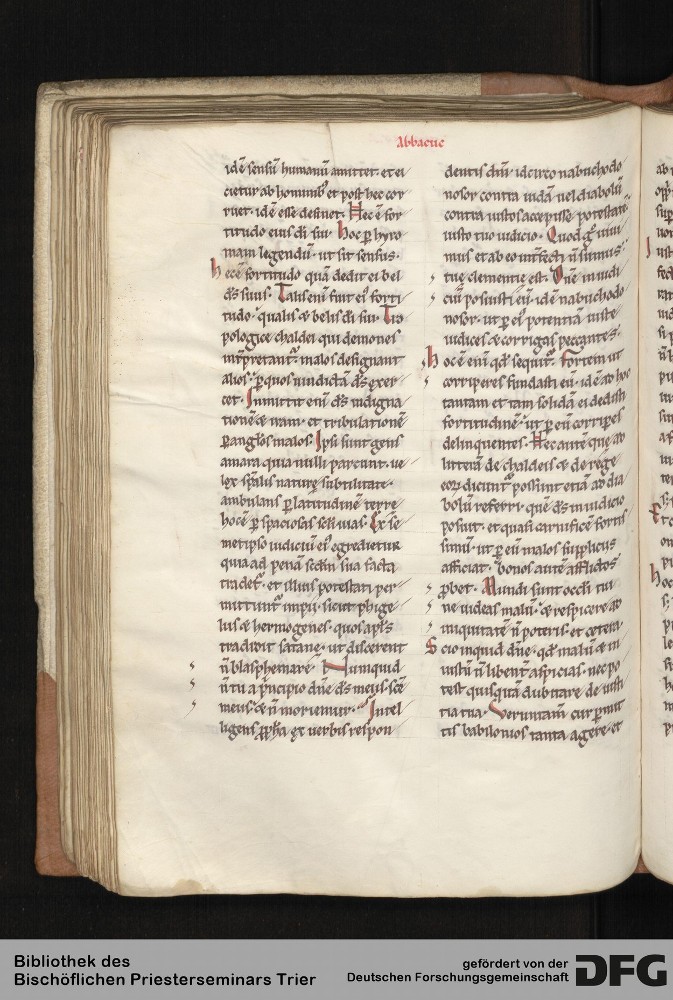 Abbacuc
idē sensū humanū amittet. et ei
cietur ab hominib; et post hec cor
ruet. idē esse desinet. Hec ē for
titudo eius dī sui. hoc ꝑ hyro
niam legendū. ut sit sensus.
hec ē fortitudo quā dedit ei bel
dš suus. Talis enī fuit ei' forti
tudo. qualis & belis dī sui. Tro
pologice chaldei qui demones
int̄pretant̄. malos designant
alios. ꝑ quos iundictā dš exer
cet. Inmittit enī dš indigna
tionē & iram. et tribulationē
ꝑ anglos malos. Ipsi sunt gens
amara quia nulli parcunt. ue
lox sp̄alis naturę subtilitate.
ambulans ꝑ latitudinē terre
hoc ē ꝑ spaciosas scli uias. Ex se
metipso iudiciū ei' egredietur
quia ad penā scdm sua facta
tradet̄. et illius potestati per
mittunt̄ impii. sicut phige
lus & hermogenes. quos apłs
tradidit satane. ut discerent
ñ blasphemare. Numquid
ñ tu a p̄ncipio dñe dš meus scē
meus & ñ moriemur. Intel
ligens ꝓph̄a ex uerbis respon
dentis dn̄i. idcirco nabuchodo
nosor contra iudā uel diabolū
contra iustos accepisse potestatē.
iusto tuo iudicio. Quod g° uiui
mus et ab eo int̄fecti ñ sumus.
tuę clementię est. Dn̄e in iudi
ciū posuisti eū. idē nabuchodo
nosor. ut ꝑ ei' potentiā iuste
iudices & corrigas peccantes.
hoc ē enī qđ sequit̄. Fortem ut
corriperes fundasti eū. idē ad hoc
tantam et tam solidā ei dedisti
fortitudinē. ut ꝑ eū corripes
delinquentes. Hec autē quę ad
litterā de chaldeis & de rege
eoꝝ dicunt̄ possunt etiā ad dia
bolū referri. quē dš in iudicio
posuit. et quasi carnificē fortis
simū. ut ꝑ eū malos suppliciis
afficiat. bonos autē afflictos
ꝓbet. Mundi sunt oculi tui
ne uideas malū. & respicere ad
iniquitatē ñ poteris. et cetera
Scio inquid dñe. qđ malū & in
iustū ñ libent̄ aspicias. nec po
test quisquā dubitare de iusti
tia tua. Veruntam̄ cur ꝑmit
tis babilonios tanta agere. et
Bibliothek des
Bischöflichen Priesterseminars Trier
gefördert von der
Deutschen Forschungsgemeinschaft
DFG